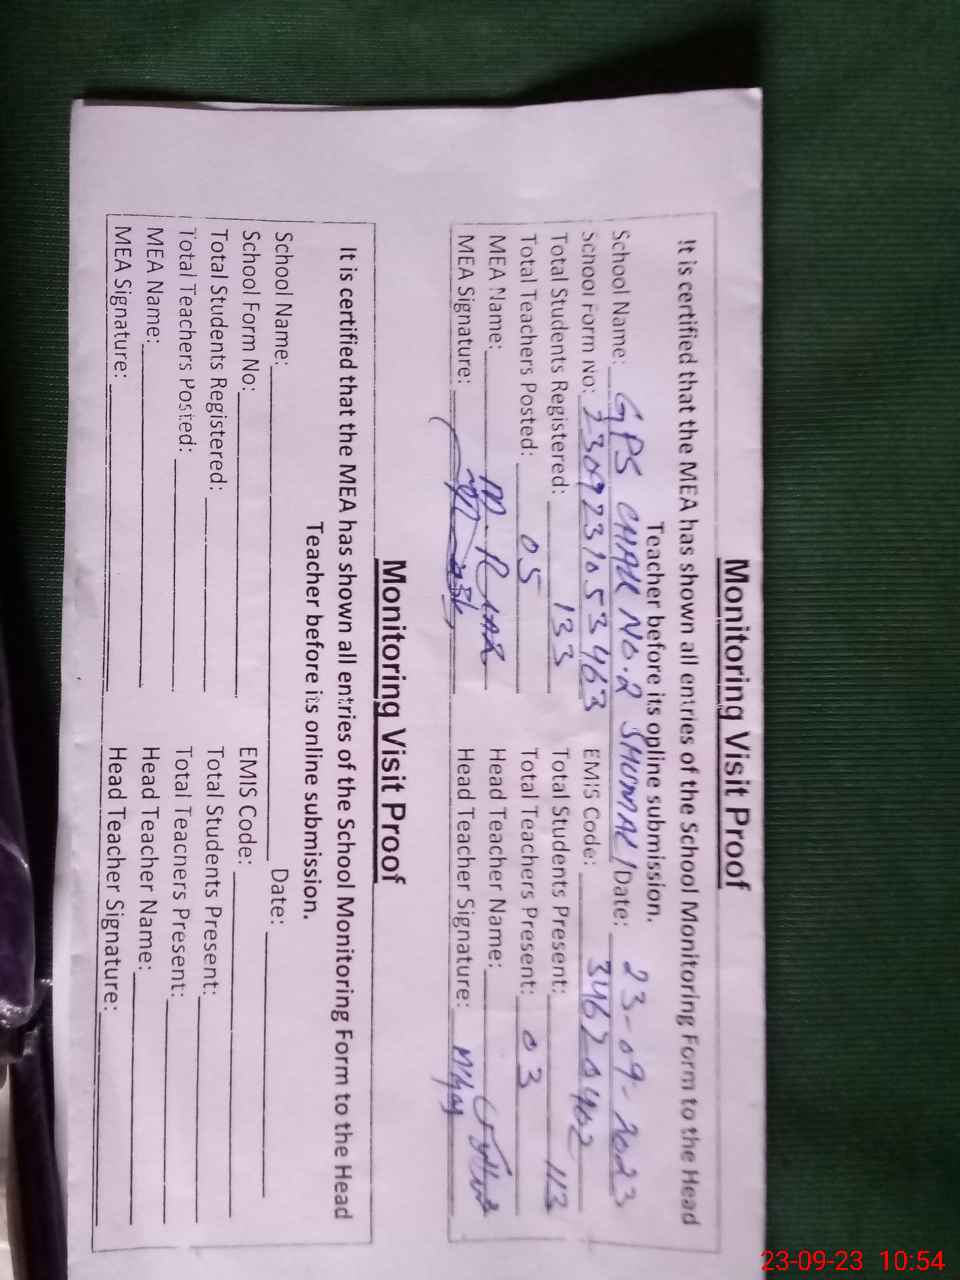 Monitoring Visit Proof
It is certified that the MEA has shown all entries of the School Monitoring Form to the Head
Teacher before its online submission.
School Name: GPS CHAK NO.2 SHUMALI Date: 23-09-2023
School Form No: 230923105 3463 EMIS Code: 34620402
Total Students Registered: 133 Total Students Present: 113
Total Teachers Posted: 05 Total Teachers Present: 03
MEA Name: Head Teacher Name:
MEA Signature: Head Teacher Signature:
Monitoring Visit Proof
It is certified that the MEA has shown all entries of the School Monitoring Form to the Head
Teacher before its online submission.
School Name: Date:
School Form No: EMIS Code:
Total Students Registered: Total Students Present:
Total Teachers Posted: Total Teachers Present:
MEA Name: Head Teacher Name:
MEA Signature: Head Teacher Signature:
23-09-23 10:54